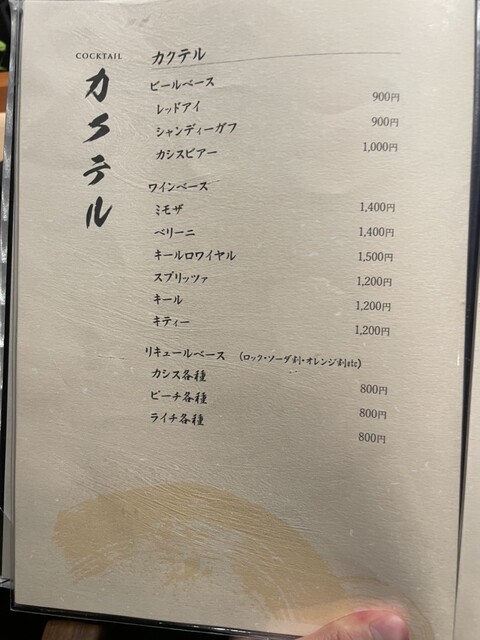 COCKTAIL
カクテル
カクテル
ビールベース
レッドアイ 900円
シャンディーガフ 900円
カシスビアー 1,000円
ワインベース
ミモザ 1,400円
ベリーニ 1,400円
キールロワイヤル 1,500円
スプリッツァ 1,200円
キール 1,200円
キティー 1,200円
リキュールベース (ロック・ソーダ割・オレンジ割etc)
カシス各種 800円
ピーチ各種 800円
ライチ各種 800円